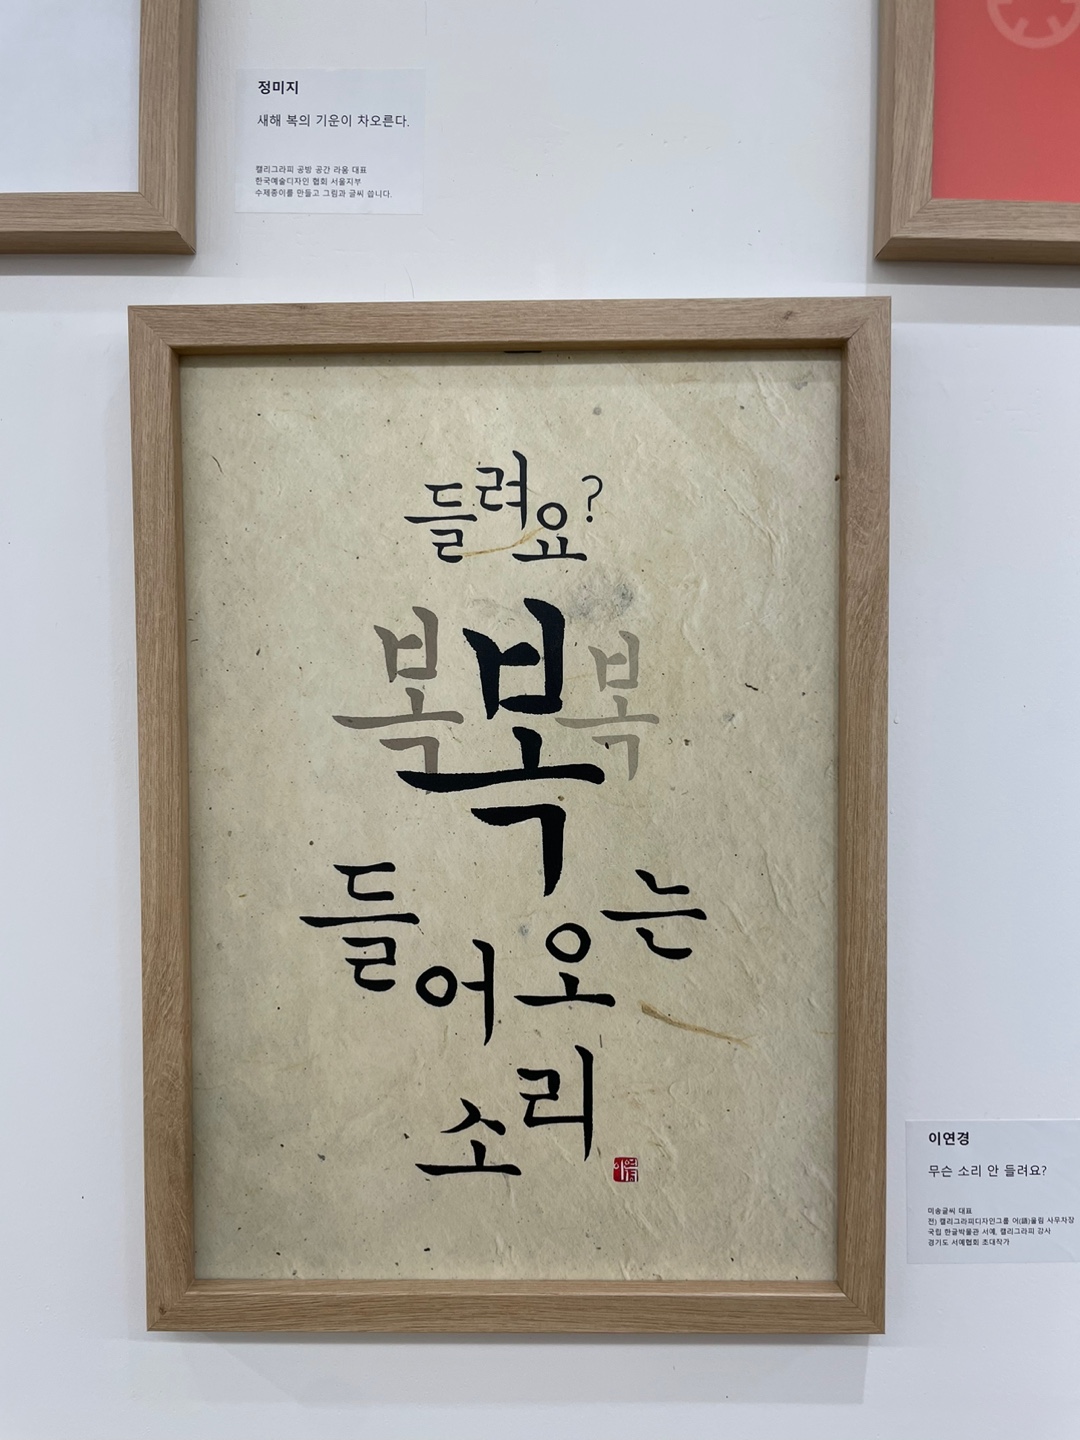 정미지
새해 복의 기운이 차오른다.
캘리그라피 공방 공간 라움 대표
한국예술디자인 협회 서울지부
수제종이를 만들고 그림과 글씨 씁니다.
들려요?
복 복 복
들어오는
소리
이연경
무슨 소리 안 들려요?
미송글씨 대표
전) 캘리그라피디자인그룹 어(語)울림 사무차장
국립 한글박물관 서예, 캘리그라피 강사
경기도 서예협회 초대작가